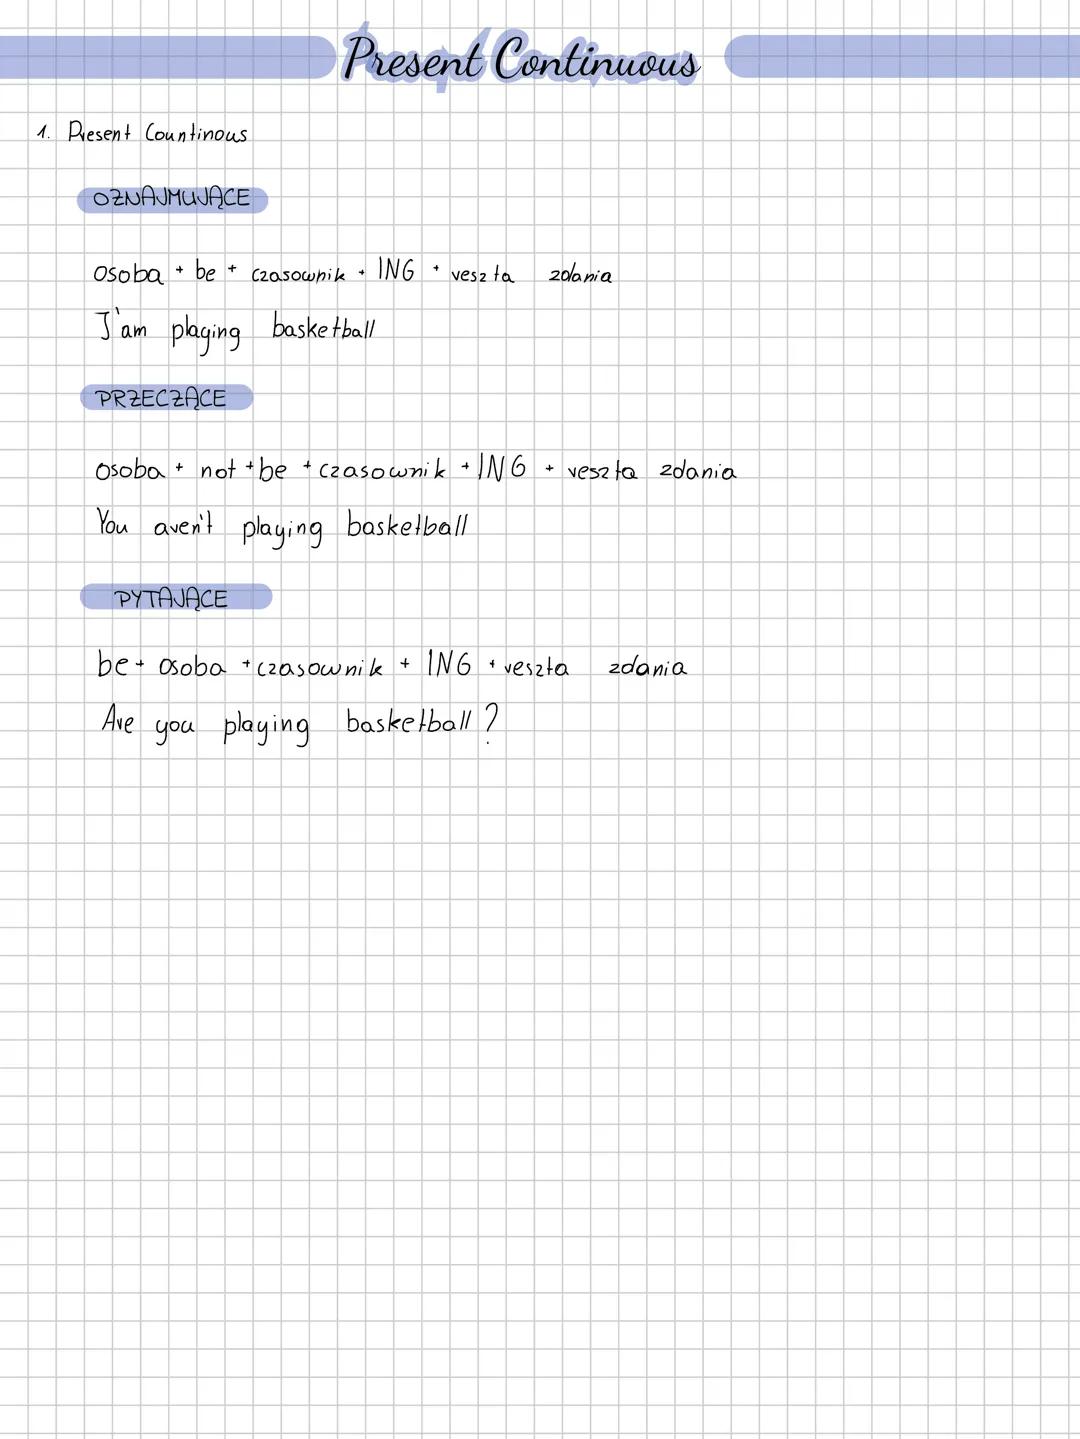 Present Continuous
1. Present Countinous
OZNAJMUJĄCE
osoba + be + czasownik + ING + reszta zdania
I'am playing basketball
PRZECZĄCE
osoba + not + be + czasownik + ING + reszta zdania
You aren't playing basketball
PYTAJĄCE
be + osoba + czasownik + ING + reszta zdania
Are you playing basketball?